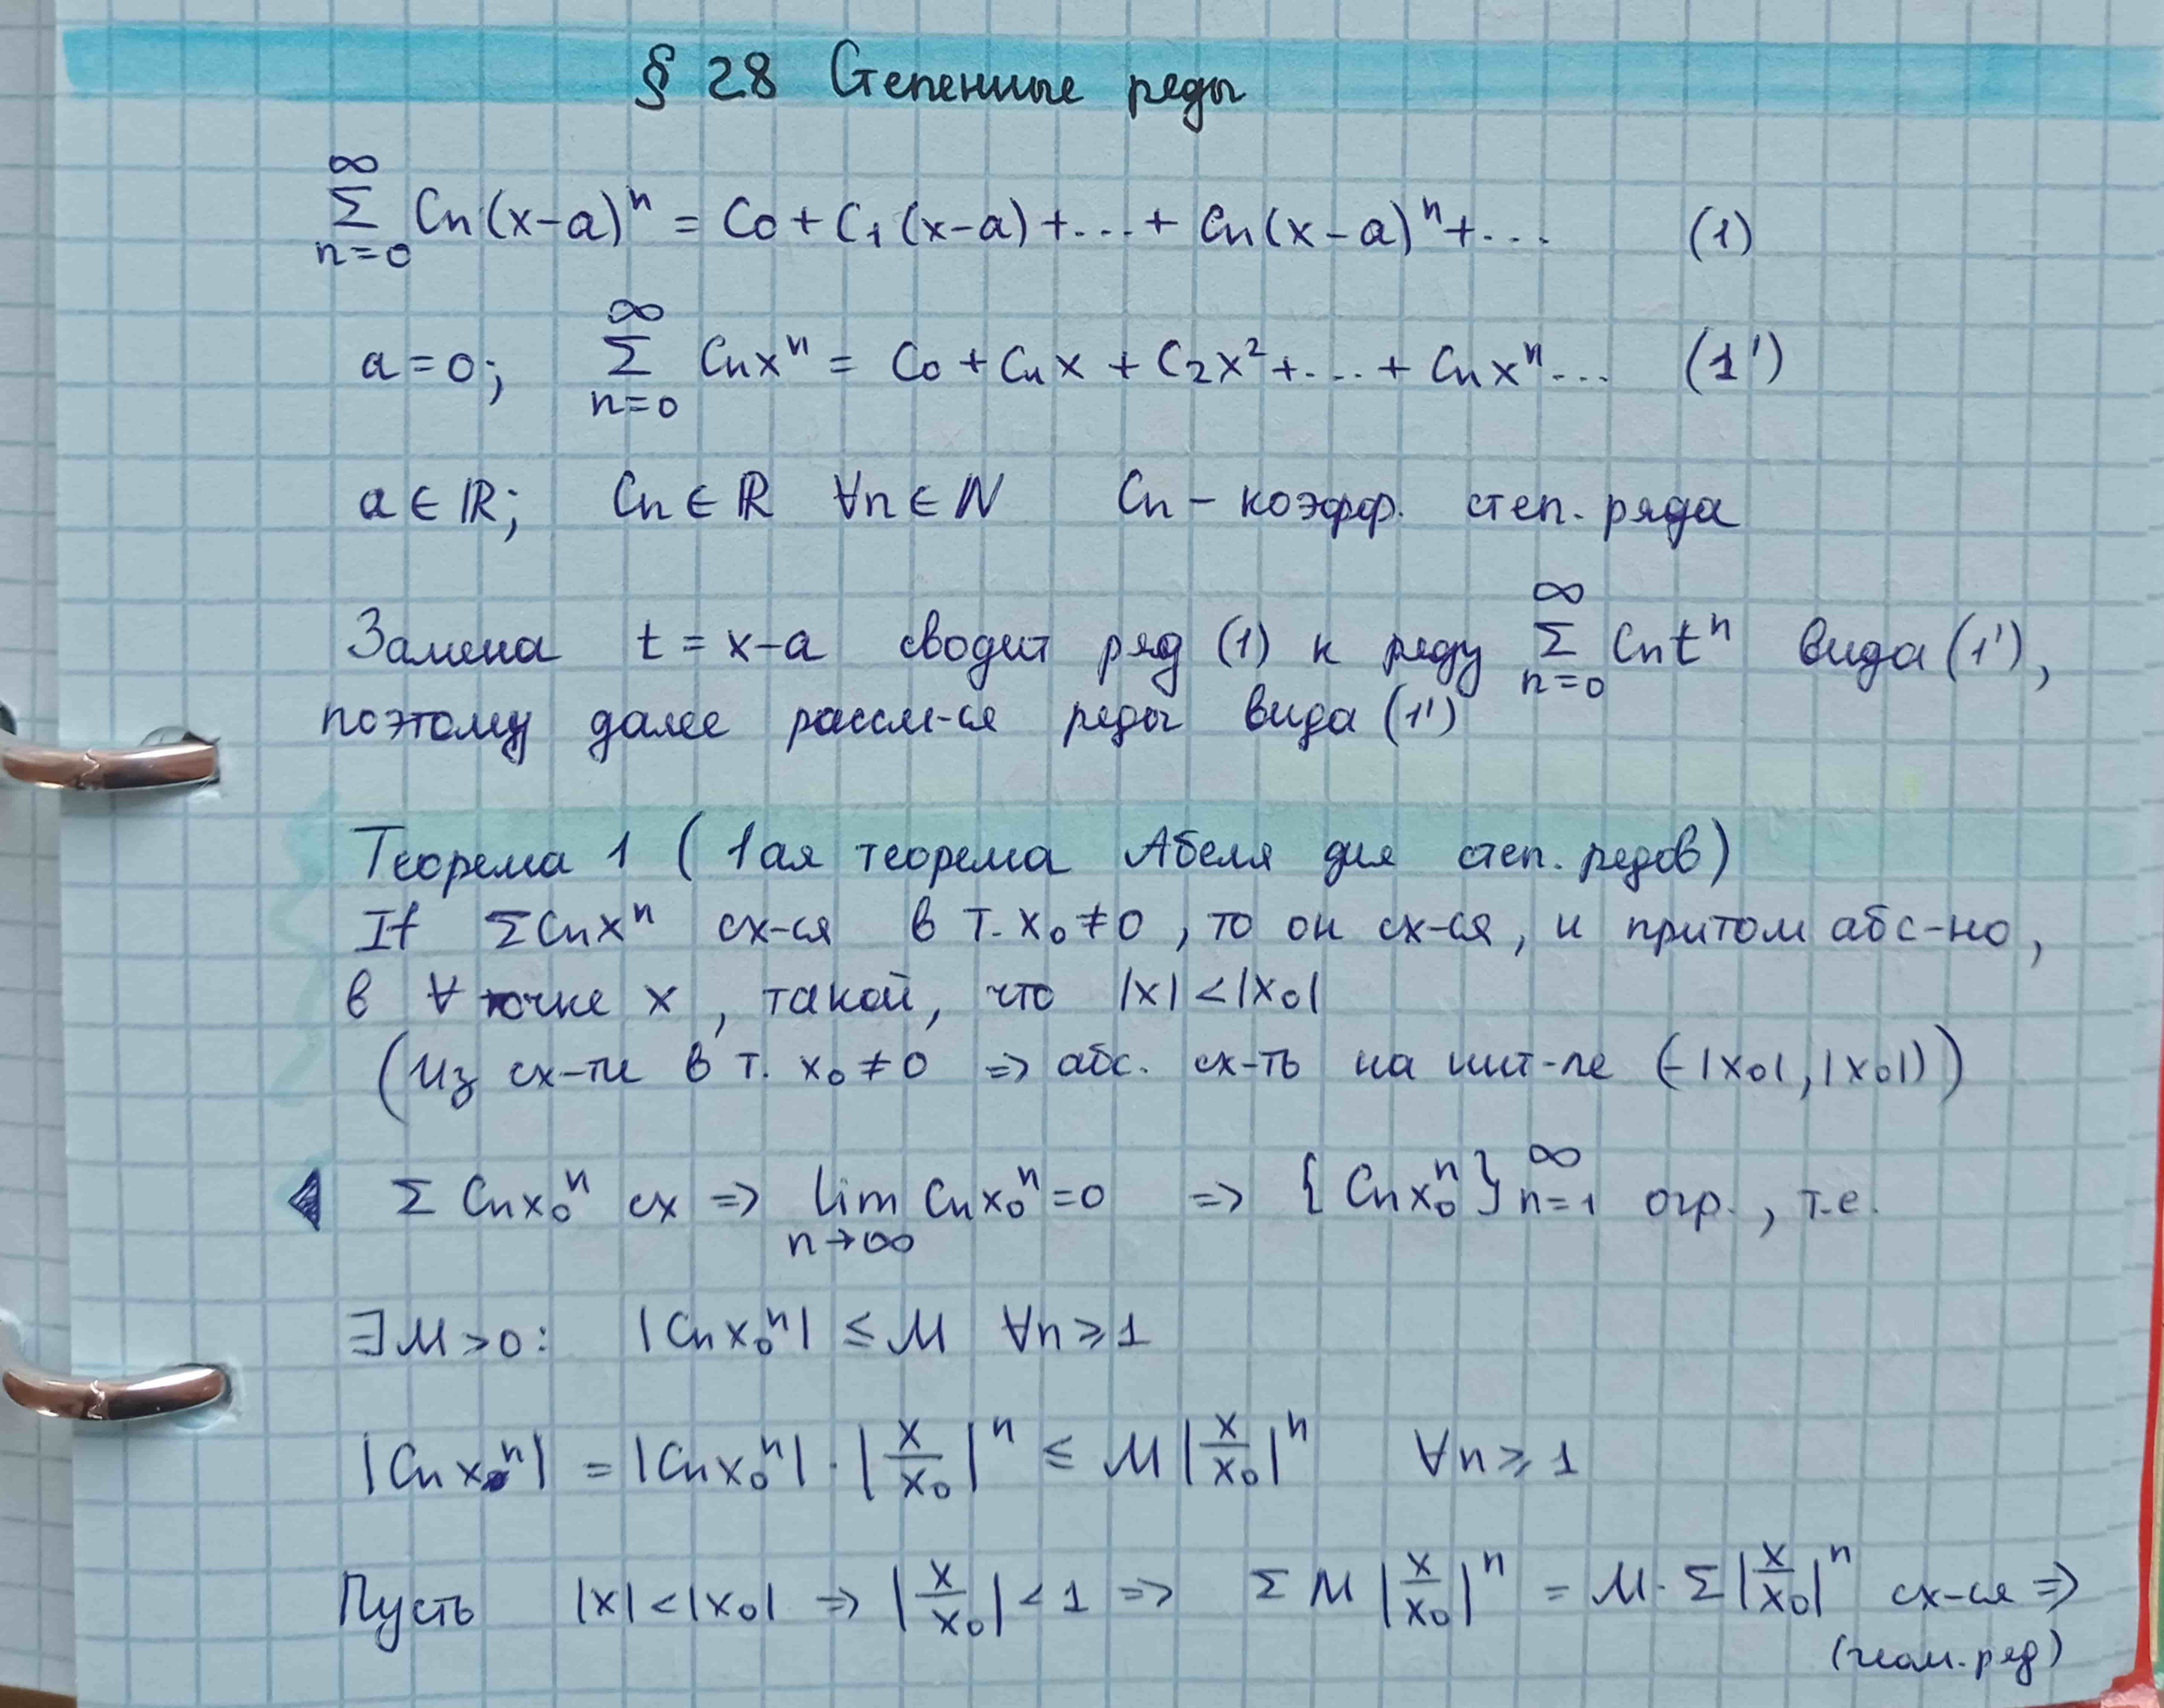 § 28 Степенные ряды
∞∑n=0 Cn(x-a)ⁿ = C0 + C1(x-a) + ... + Cn(x-a)ⁿ + ... (1)
a = 0; ∞∑n=0 Cnxⁿ = C0 + Cnx + C2x² + ... + Cnxⁿ... (1')
a ∈ ℝ; Cn ∈ ℝ ∀n ∈ ℕ Cn - коэфф. степ. ряда
Замена t = x-a сводит ряд (1) к ряду ∞∑n=0 Cntⁿ вида (1'),
поэтому далее рассм-ся ряды вида (1')
Теорема 1 (1ая теорема Абеля для степ. рядов)
If ∑Cnxⁿ сх-ся в т. x₀ ≠ 0, то он сх-ся, и притом абс-но,
в ∀ точке x, такой, что |x| < |x₀|
(Из сх-ти в т. x₀ ≠ 0 => абс. сх-ть на инт-ле (-|x₀|, |x₀|))
◀ ∑ Cnx₀ⁿ сх => lim n→∞ Cnx₀ⁿ = 0 => {Cnx₀ⁿ}∞n=1 огр., т.е.
∃M > 0: |Cnx₀ⁿ| ≤ M ∀n ≥ 1
|Cnxⁿ| = |Cnx₀ⁿ| · |x/x₀|ⁿ ≤ M |x/x₀|ⁿ ∀n ≥ 1
Пусть |x| < |x₀| => |x/x₀| < 1 => ∑ M |x/x₀|ⁿ = M · ∑ |x/x₀|ⁿ сх-ся =>
(геом. ряд)